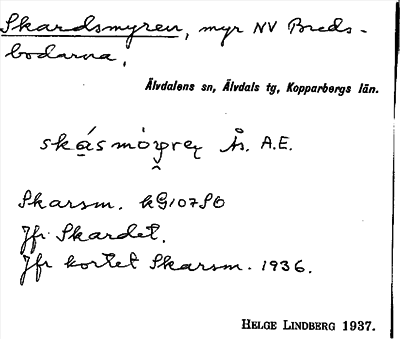 Skardsmyren, myr NV Breds-
bodarna.
Älvdalens sn, Älvdals tg, Kopparbergs län.
A.E.
Skarsm. kG107SO
Jfr Skardet.
Jfr kortet Skarsm. 1936.
HELGE LINDBERG 1937.